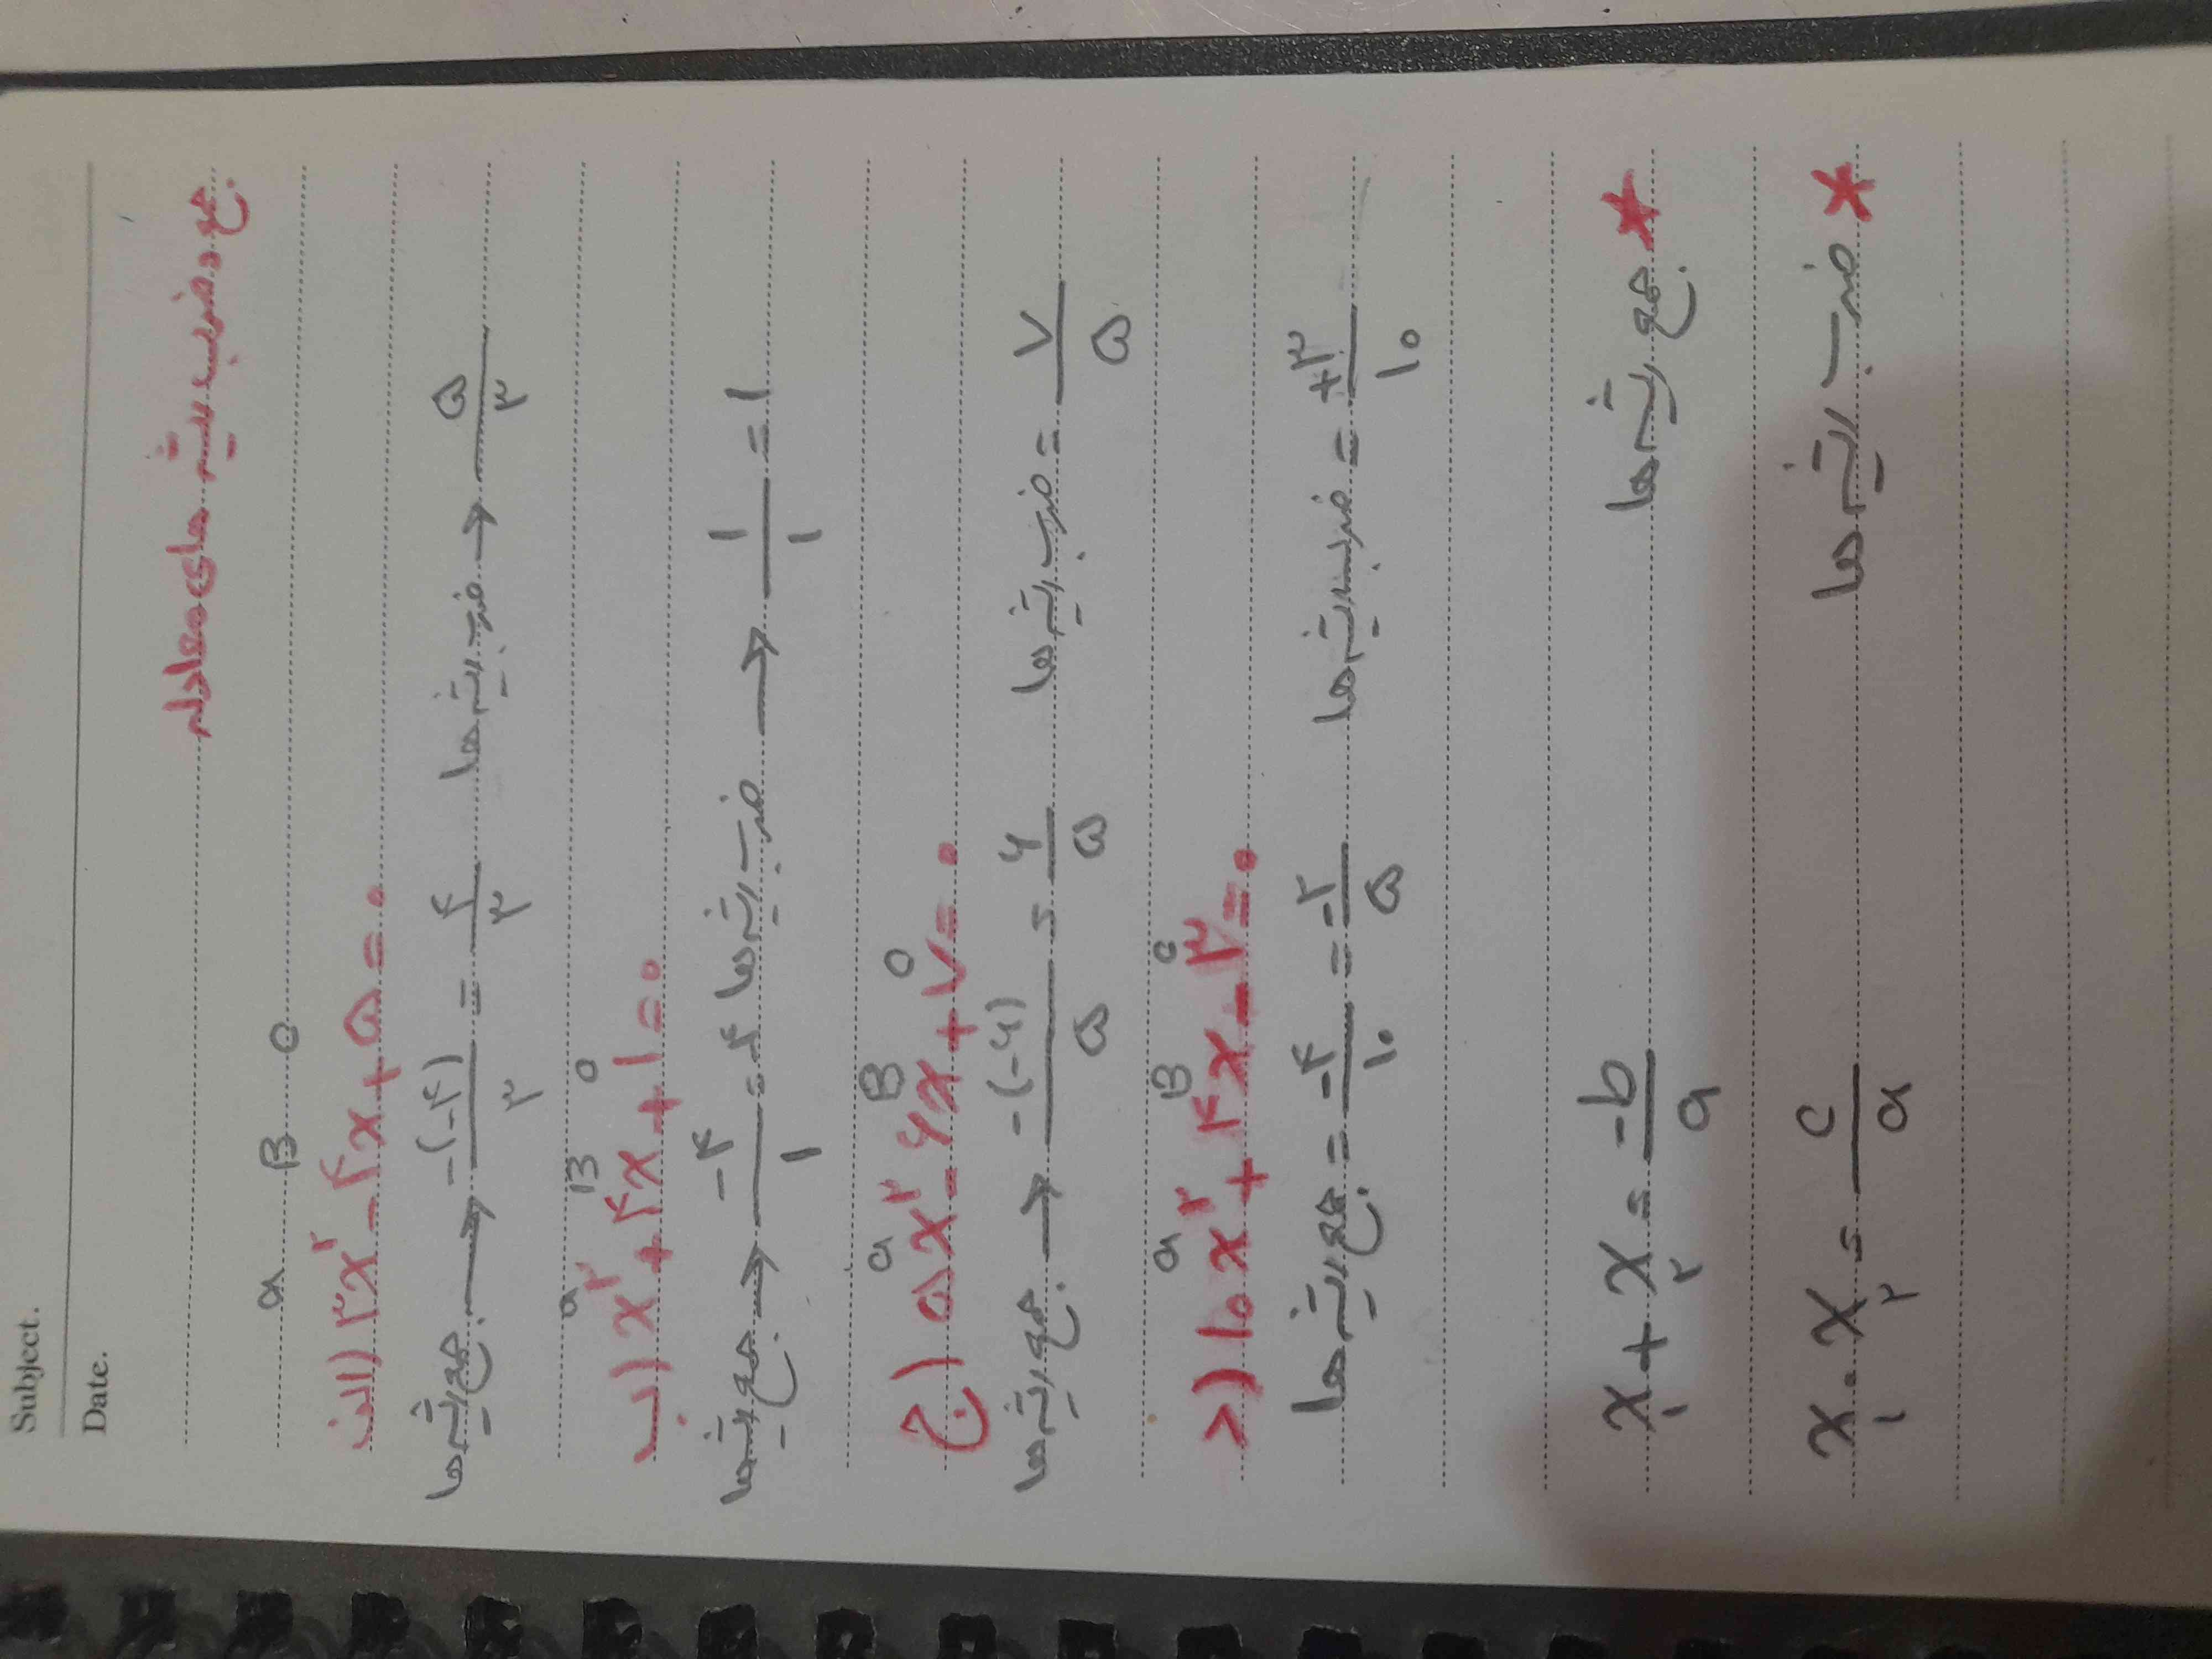 Subject.
Date.
جمع و ضرب ریشه های معادله
a B C
الف) ۳x² - ۴x + ۵ = ۰
جمع ریشه ها → -(-۴)/۳ = ۴/۳ ضرب ریشه ها → ۵/۳
a B C
ب) x² + ۴x + ۱ = ۰
جمع ریشه ها → -۴/۱ = -۴ ضرب ریشه ها → ۱/۱ = ۱
a B C
ج) ۵x² - ۶x + ۷ = ۰
جمع ریشه ها → -(-۶)/۵ = ۶/۵ ضرب ریشه ها = ۷/۵
a B C
د) ۱۰x² + ۴x - ۳ = ۰
جمع ریشه ها = -۴/۱۰ = -۲/۵ ضرب ریشه ها = +۳/۱۰
x₁ + x₂ = -b/a جمع ریشه ها *
x₁ . x₂ = c/a ضرب ریشه ها *